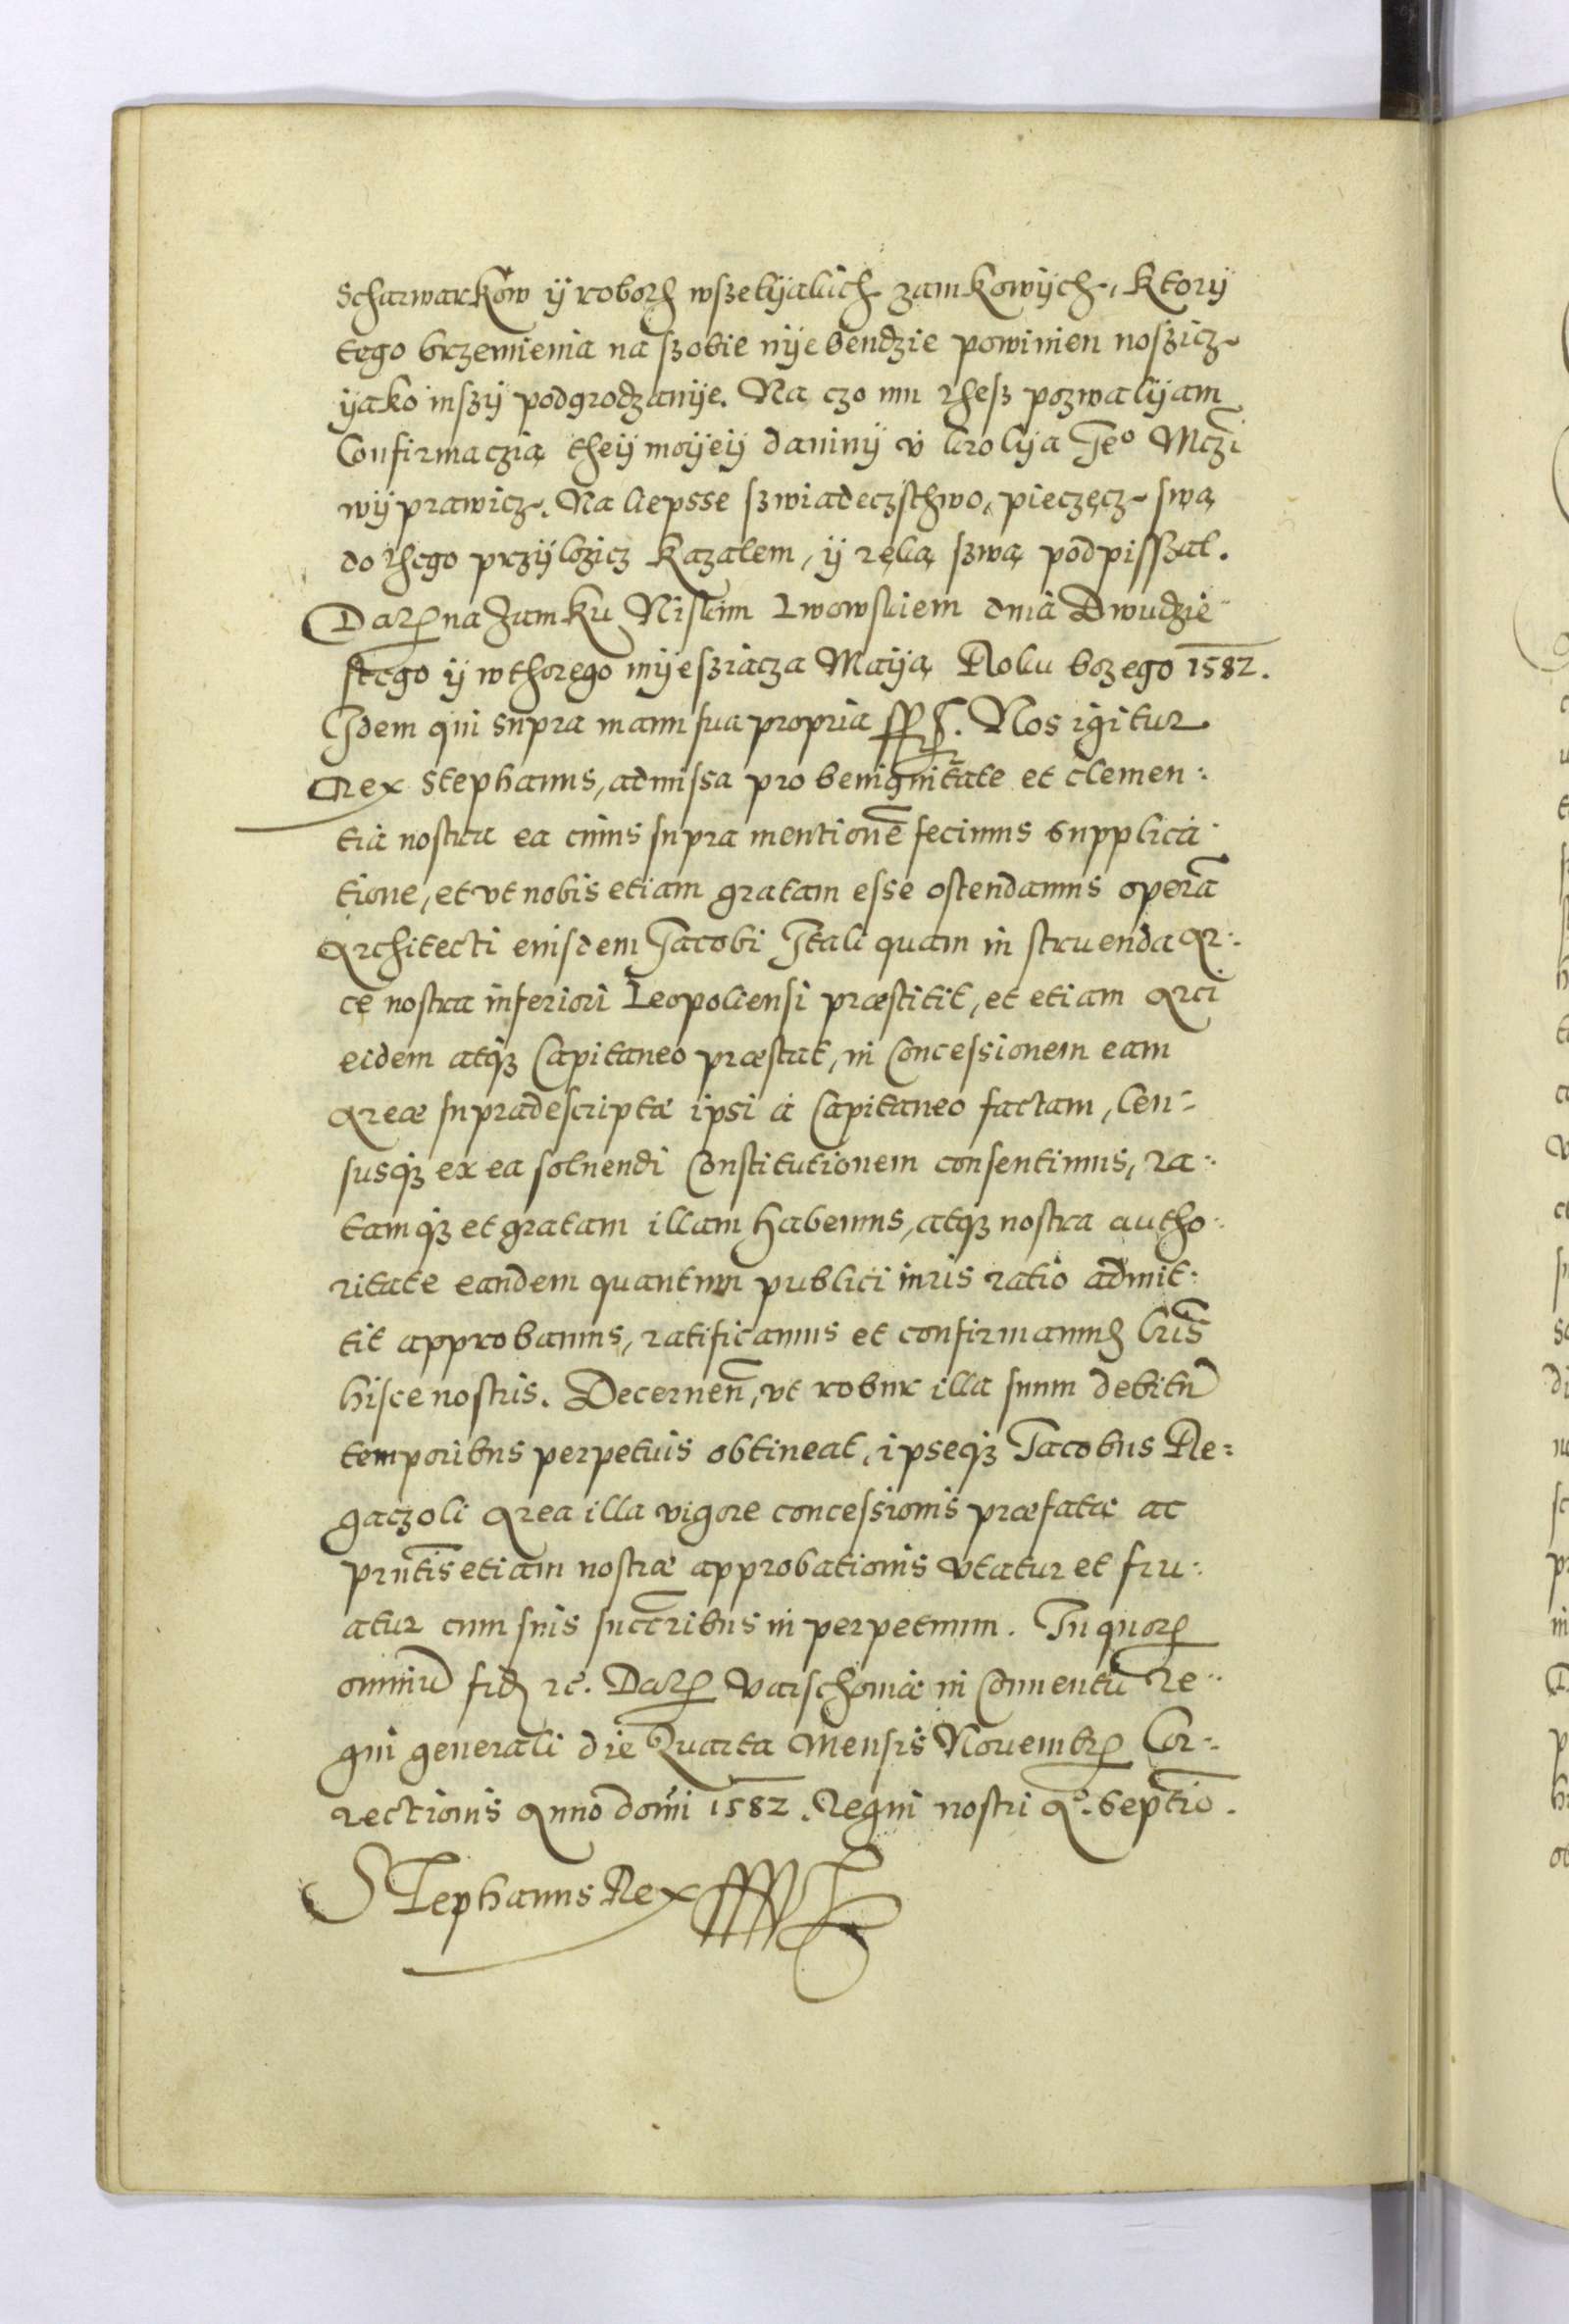 Scharwarkow ÿ roboth wszelÿakich zamkowÿch, Ktorÿ
tego brzemienia na szobie nÿe bendzie powinien noszicz
ÿako inszÿ podgrodzanÿe. Na czo mu thesz pozwalÿam
Confirmaczią theÿ moÿeÿ daninÿ v krolÿa Jeº Mczi
wÿprawicz. Na liepsse szwiadeczsthwo, pieczęcz swą
do thego przÿlozicz kazalem, ÿ ręką szwą podpisszal.
Datt na Zamku Niskim Lwowskiem dnia Dwudzie
stego ÿ wthorego mÿesziącza Maÿa Roku bozego 1582.
Idem qui supra manu sua propria sspt. Nos igitur
Rex Stephanus, admissa pro benignitate et clemen:
tia nostra ea cuius supra mentionē fecimus supplica
tione, et vt nobis etiam gratam esse ostendamus operā
Architecti eiusdem Jacobi Itali quam in struenda Ar:
ce nostra inferiori Leopoliensi præstitit, et etiam Arci
eidem atq₃ Capitaneo præstat, in Concessionem eam
Areæ supradescriptæ ipsi à Capitaneo factam, Cen:
susq₃ ex ea soluendi Constitutionem consentimus, ra:
tamq₃ et gratam illam habemus, atq₃ nostra autho:
ritate eandem quantum publici iuris ratio admit:
tit approbamus, ratificamus et confirmamus lris
hisce nostris. Decernen̄, vt robur illa suum debitū
temporibus perpetuis obtineat, ipseq₃ Jacobus Re:
gaczoli Area illa vigore concessionis præfatæ ac
pr̄ntis etiam nostræ approbationis vtatur et fru:
atur cum suis succ̄ribus in perpetuum. In quorꝝ
omniū fid. rc. Datt Varschouiæ in Conuentu Re:
gni generali die Quarta Mensis Nouembr Cor:
rectionis Anno domi 1582. Regni nostri Aº. Septio.
Stephanus Rex sspt